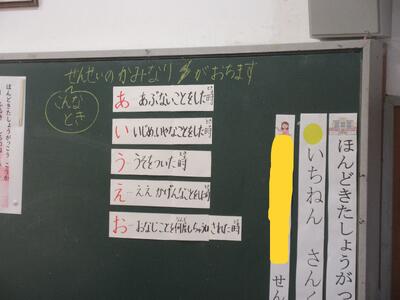 せんせいの かみなり がおちます
こんな
とき
あ あぶないことをした時
い いじめ、いやなことをした時
う うそをついた時
え ええ かげんなことをした時
お おなじことを何度もちゅういされた時
ほんどきたしょうがっ
いちねん さんく
せん
ほんどきたしょうがっこう こうか